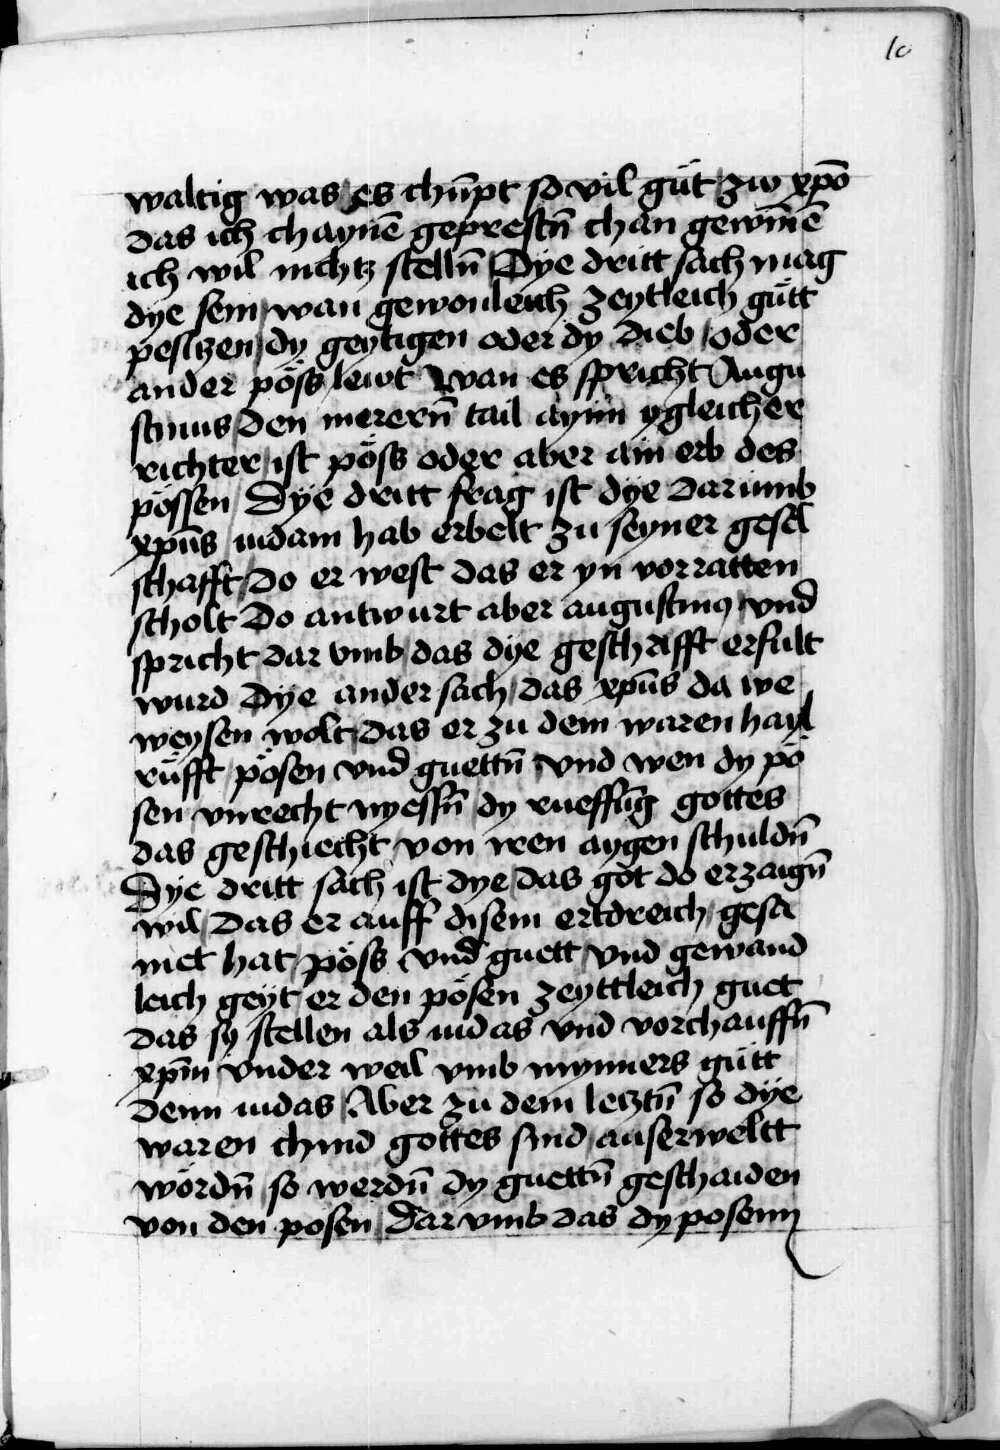 10
waltig was es chūpt so vil güt zw xp̄o
das ich chaynē geprestn̄ chan gewin̄ē
ich wil nichtz stelln̄ Dye dritt sach mag
dye sein wan gewonleich zeytleich gütt
pesitzen dy geytigen oder dy dieb oder
ander pöss lewt Wan es spricht Augu
stinus Den merern̄ tail aynin ygleicher
richter ist pöss oder aber ain erb des
pössen Dye dritt frag ist dye Darumb
xpūs iudam hab erbelt zu seyner gesel
schafft Do er west das er yn vorratten
scholt Do antwurt aber augustinꝯ vnd
spricht dar vmb das dye geschrifft erfult
wurd Dye ander sach das xpūs da we
weysen wolt das er zu dem waren hayl
rüfft pösen vnd guettn̄ vnd wen dy pö
sen vnrecht nyessn̄ dy rueffūg gottes
das geschiecht von iren aygen schuldn̄
Dye dritt sach ist dye das got do erzaign̄
wil Das er auff disem ertdreich gesa
met hat pöss vnd guett vnd gewand
leich geyt er den pösen zeyttleich guet
das sy stellen als iudas vnd vorchauffn̄
xpm̄ vnder weil vmb mynners gütt
denn iudas Aber zu dem letztn̄ so dye
waren chind gottes sind auserweltt
wördn̄ so werdn̄ dy guettn̄ geschaiden
von den posen Dar vmb das dy posenn